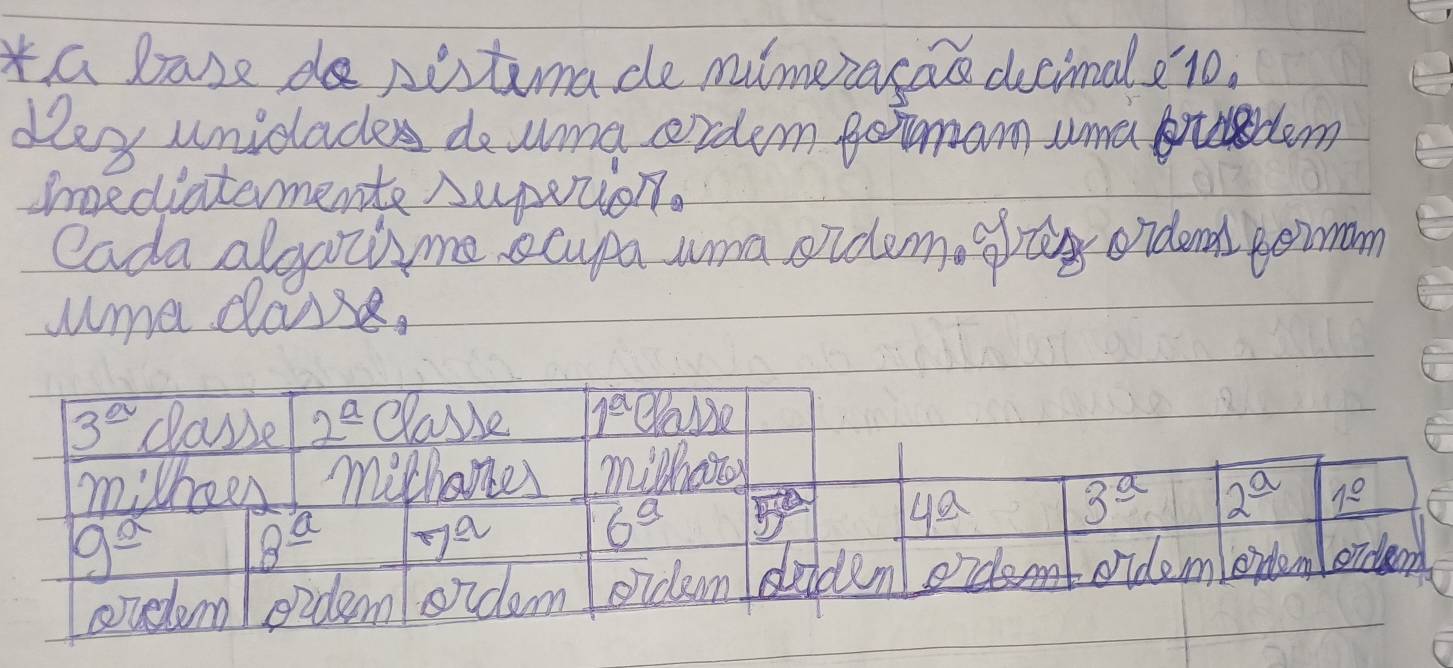 * A base do sistema de númeração decimal é 10.
Dez unidades de uma ordem formam uma ordem
imediatamente superior.
Cada algarismo ocupa uma ordem. Três ordens formam
uma classe.
3ª classe 2ª Classe 1ª Classe
milhoes milhares milhares
9ª 8ª 7ª 6ª 5ª 4ª 3ª 2ª 1º
ordem ordem ordem ordem ordem ordem ordem ordem ordem